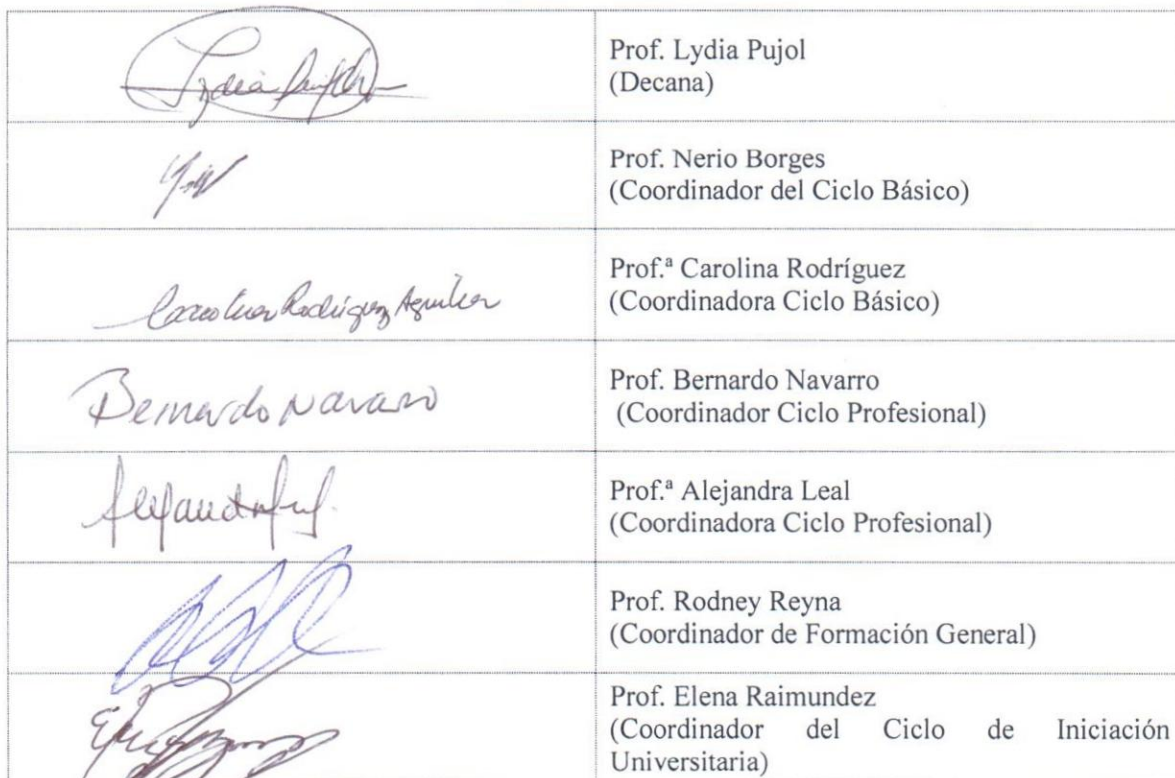 Lydia Pujol
Prof. Lydia Pujol
(Decana)
Prof. Nerio Borges
(Coordinador del Ciclo Básico)
Carolina Rodríguez Aguilar
Prof.ª Carolina Rodríguez
(Coordinadora Ciclo Básico)
Bernardo Navarro
Prof. Bernardo Navarro
(Coordinador Ciclo Profesional)
Prof.ª Alejandra Leal
(Coordinadora Ciclo Profesional)
Prof. Rodney Reyna
(Coordinador de Formación General)
Prof. Elena Raimundez
(Coordinador del Ciclo de Iniciación
Universitaria)